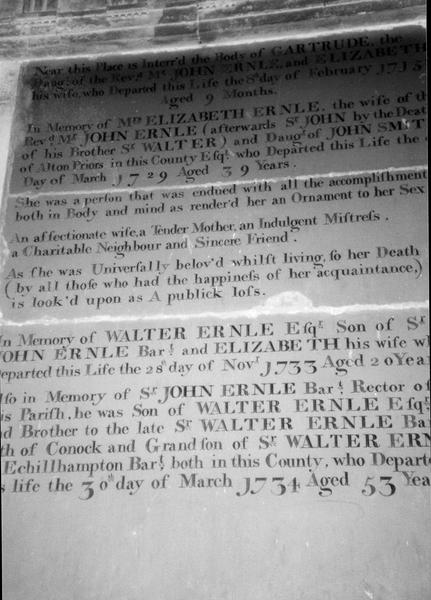 Near this Place is Interr'd the Body of GARTRUDE, the
Daug.r of the Rev.d Mr. JOHN ERNLE, and ELIZABETH
his wife, who Departed this Life the 8th day of February J715
Aged 9 Months.
In Memory of Mrs ELIZABETH ERNLE, the wife of th
Rev.d Mr JOHN ERNLE (afterwards Sr JOHN by the Deat
of his Brother Sr WALTER) and Daug.r of JOHN SMIT
of Alton Priors in this County Esq.r who Departed this Life the
Day of March J729 Aged 39 Years.
She was a perſon that was endued with all the accompliſhment
both in Body and mind as render'd her an Ornament to her Sex
An affectionate wife, a Tender Mother, an Indulgent Miſtreſs.
a Charitable Neighbour and Sincere Friend.
As ſhe was Univerſally belov'd whilſt living, ſo her Death
(by all thoſe who had the happineſs of her acquaintance,)
is look'd upon as A publick loſs.
In Memory of WALTER ERNLE Eſq.r Son of Sr
JOHN ERNLE Bar.t and ELIZABETH his wife wh
Departed this Life the 28th day of Nov.r J733 Aged 20 Year
lſo in Memory of Sr JOHN ERNLE Bar.t Rector of
is Pariſh, he was Son of WALTER ERNLE Eſq.r
nd Brother to the late Sr WALTER ERNLE Ba
th of Conock and Grandſon of Sr WALTER ERN
Echillhampton Bar.t both in this County, who Departe
s life the 30th day of March J734 Aged 53 Yea